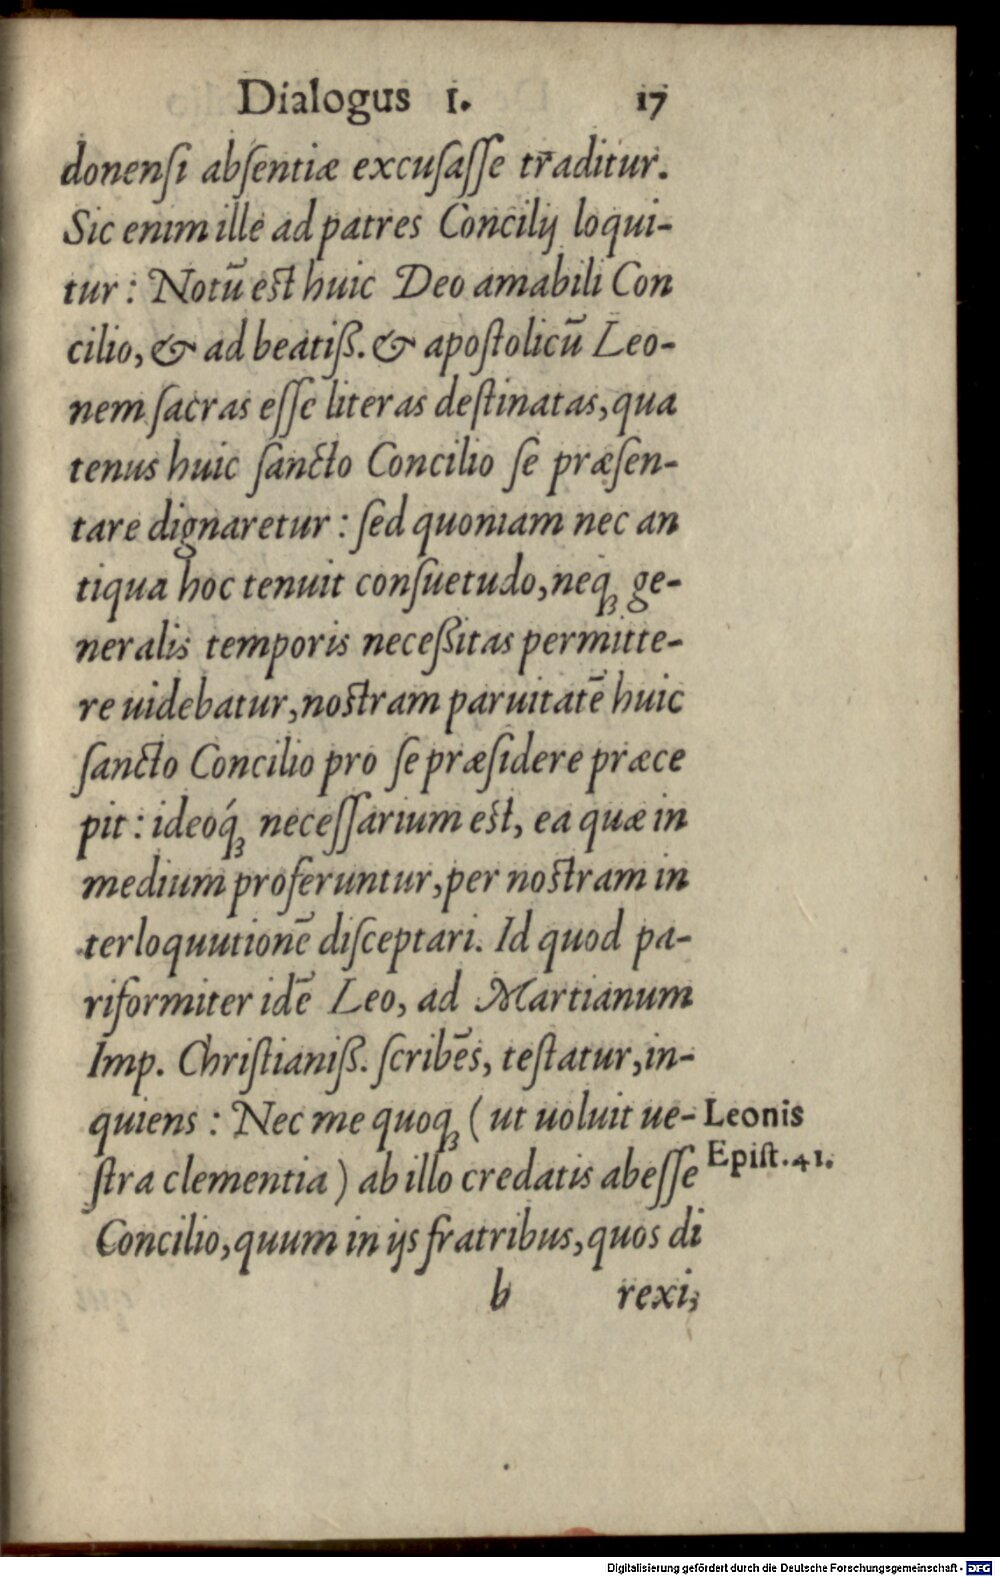 Dialogus 1. 17
donenſi abſentiæ excuſaſſe traditur.
Sic enim ille ad patres Concilij loqui-
tur: Notũ est huic Deo amabili Con
cilio, & ad beatiß. & apoſtolicũ Leo-
nem ſacras eſſe literas deſtinatas, qua
tenus huic ſancto Concilio ſe præſen-
tare dignaretur: ſed quoniam nec an
tiqua hoc tenuit conſuetudo, neqꝫ ge-
neralis temporis neceßitas permitte-
re uidebatur, nostram paruitatẽ huic
ſancto Concilio pro ſe præſidere præce
pit: ideóqꝫ neceſſarium est, ea quæ in
medium proferuntur, per nostram in
terloquutionẽ diſceptari. Id quod pa-
riformiter idẽ Leo, ad Martianum
Imp. Chriſtianiß. ſcribẽs, teſtatur, in-
quiens: Nec me quoqꝫ (ut uoluit ue-
ſtra clementia) ab illo credatis abeſſe
Concilio, quum in ijs fratribus, quos di
Leonis
Epiſt. 41.
b rexi,
Digitalisierung gefördert durch die Deutsche Forschungsgemeinschaft - DFG